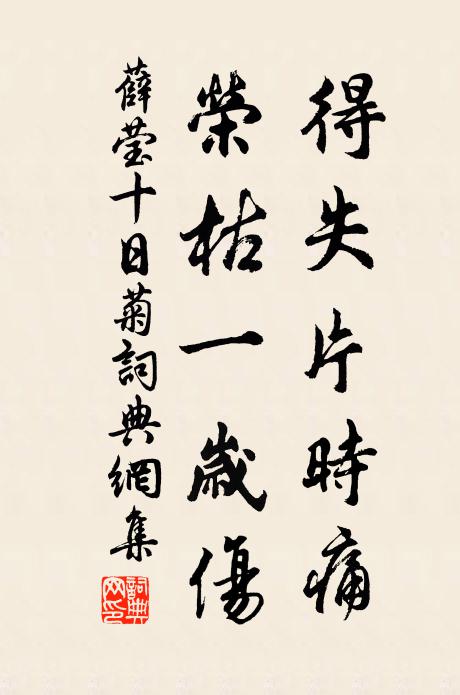 得失片時痛
榮枯一歲傷
薛瑩十日菊詞典網集
詞典網印